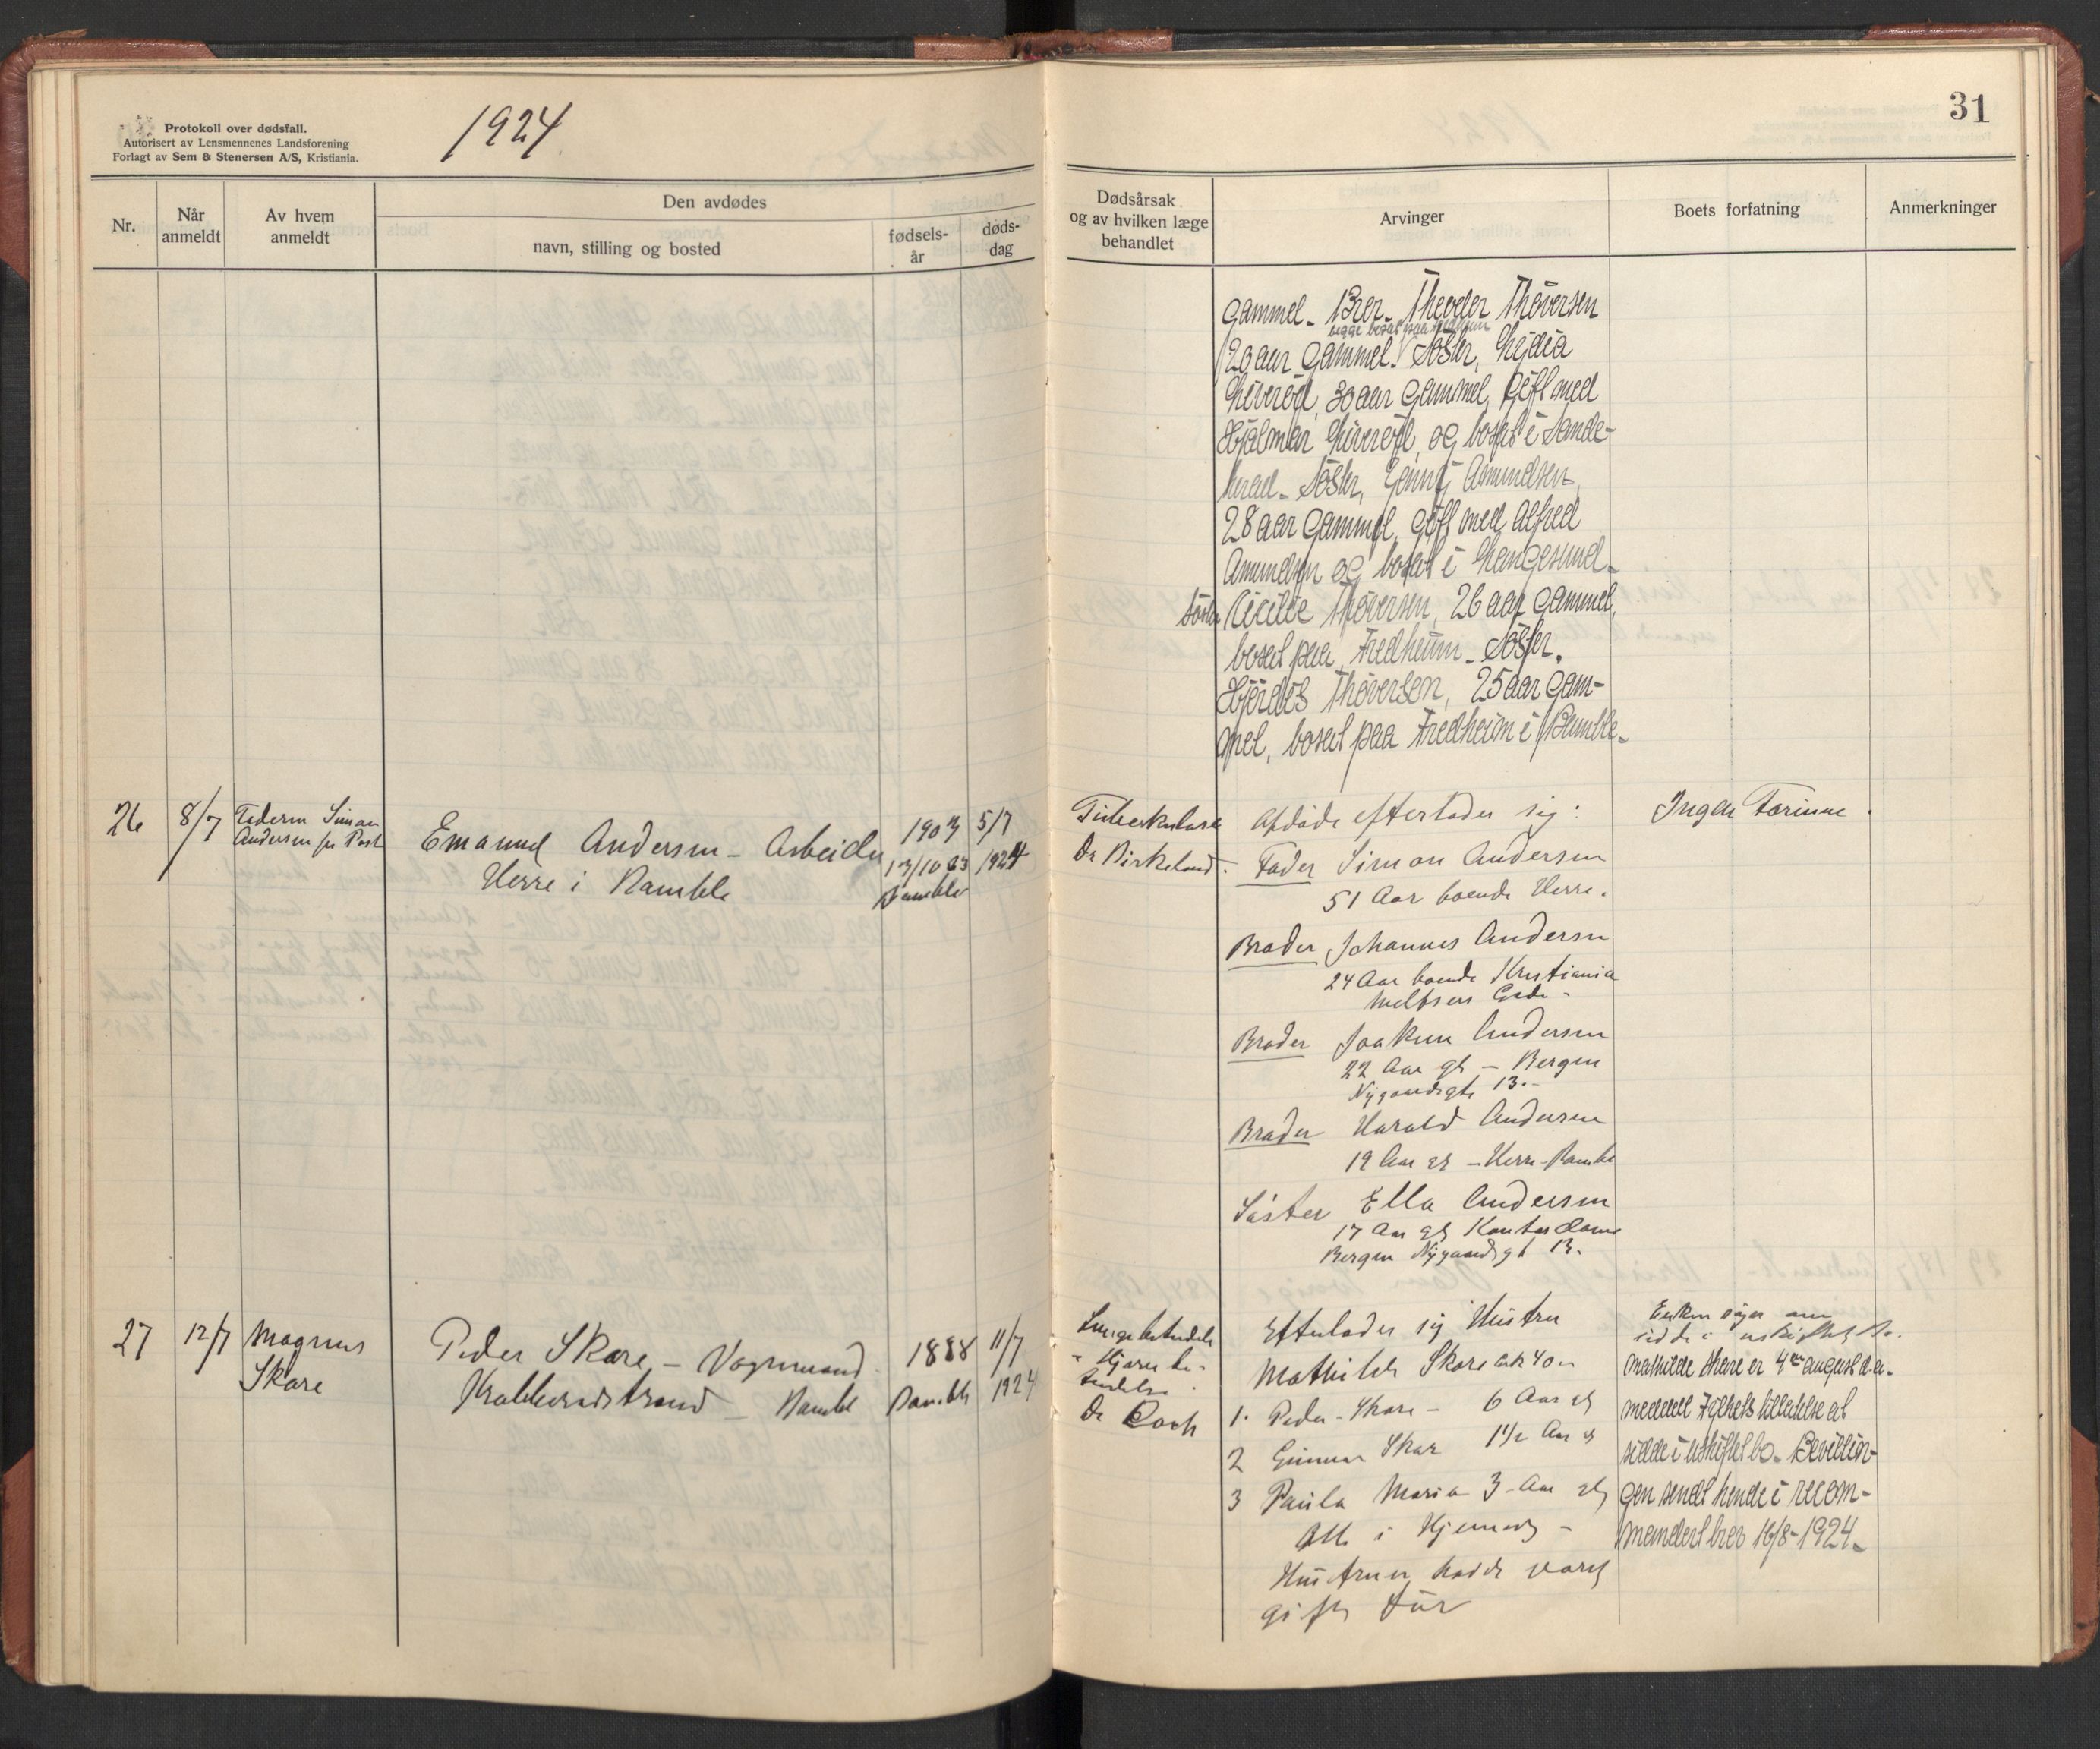 Protokoll over dødsfall.
Autorisert av Lensmennenes Landsforening
Forlagt av Sem & Stenersen A/S, Kristiania.
1924
Nr.
Når anmeldt
Av hvem anmeldt
Den avdødes
navn, stilling og bosted
fødsels-
år
døds-
dag
31
Dødsårsak
og av hvilken læge
behandlet
Arvinger
Boets forfatning
Anmerkninger
gammel - Bror - Theodor Thoversen
begge bosat paa Fredheim
20 aar gammel. Søster,
30 aar gammel, gift med
Hjalmar og bosat i Sande-
herad - Søster, Jenny Amundsen
28 aar gammel, gift med Alfred
Amundsen og bosat i Langesund -
Søster Cecilie Thoversen, 26 aar gammel,
bosat paa Fredheim - Søster,
Hjørdis Thoversen, 25 aar gam-
mel, bosat paa Fredheim i Bamble -
26
8/7
Faderen Simon
Andersen pr Post
Emanuel Andersen - Arbeider
Herre i Bamble
1903
13/10 03
Bamble
5/7
1924
Tuberkulose
Dr Birkeland.
Afdøde efterlader sig:
Fader Simon Andersen
51 Aar boende Herre.
Broder Johannes Andersen
24 Aar boende Kristiania
Broder Joakim Andersen
22 Aar gl - Bergen
Nygaardsgt 13. -
Broder Harald Andersen
19 Aar gl - Herre - Bamble
Søster Ella Andersen
17 Aar gl Kontordame
Bergen Nygaardsgt 13.
Ingen Formue.
27
12/7
Magnus
Skare
Peder Skare - Vognmand
Krabberødstrand - Bamble
1888
Bamble
11/7
1924
Lungebetendelse
- Hjerne be-
tendelse.
Dr Coch
Efterlader sig Hustru
Mathilde Skare
1. Peder - Skare - 6 Aar gl
2 Gunnar Skare 1 1/2 Aar gl
3 Paula Maria 3 Aar gl
Alle i Hjemmet -
Hustruen havde været
gift før
Enken søger om
sidde i uskiftet Bo.
Mathilde Skare er 4de august d.a.
meddelt tilladelse at
sidde i uskiftet bo - Bevillin-
gen sendt hende i recom-
mandert brev 16/8 - 1924 -